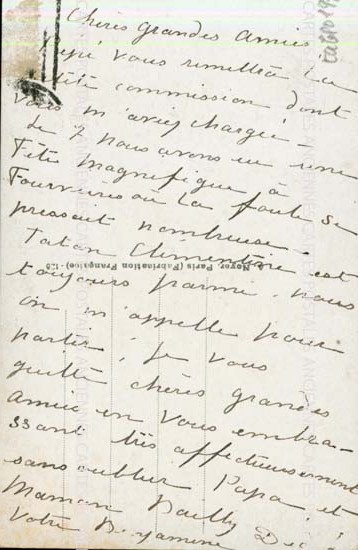 Chères grandes amies
vous remettra la
petite commission dont
vous m'aviez chargée -
Le 2 nous avons eu une
Fête magnifique à
Fourvière où la foule se
pressait nombreuse.
Tatan Clémentine est
Noyer Paris (Fabrication Française)
toujours parmi nous
on m'appelle pour
partir, je vous
quitte chères grandes
amies en vous embra-
ssant très affectueusement
sans oublier Papa et
Maman Bailly
Votre Benjamine